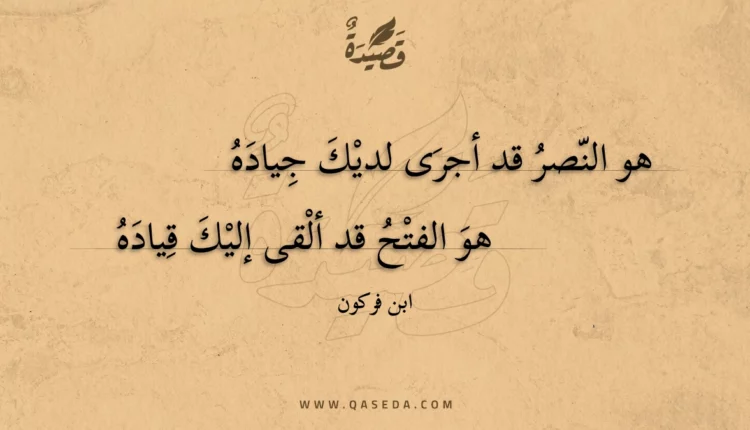 قَصِيْدَةٌ
هو النّصرُ قد أجرَى لديْكَ جِيادَهُ
هوَ الفتْحُ قد ألْقى إليْكَ قِيادَهُ
ابن فركون
WWW.QASEDA.COM